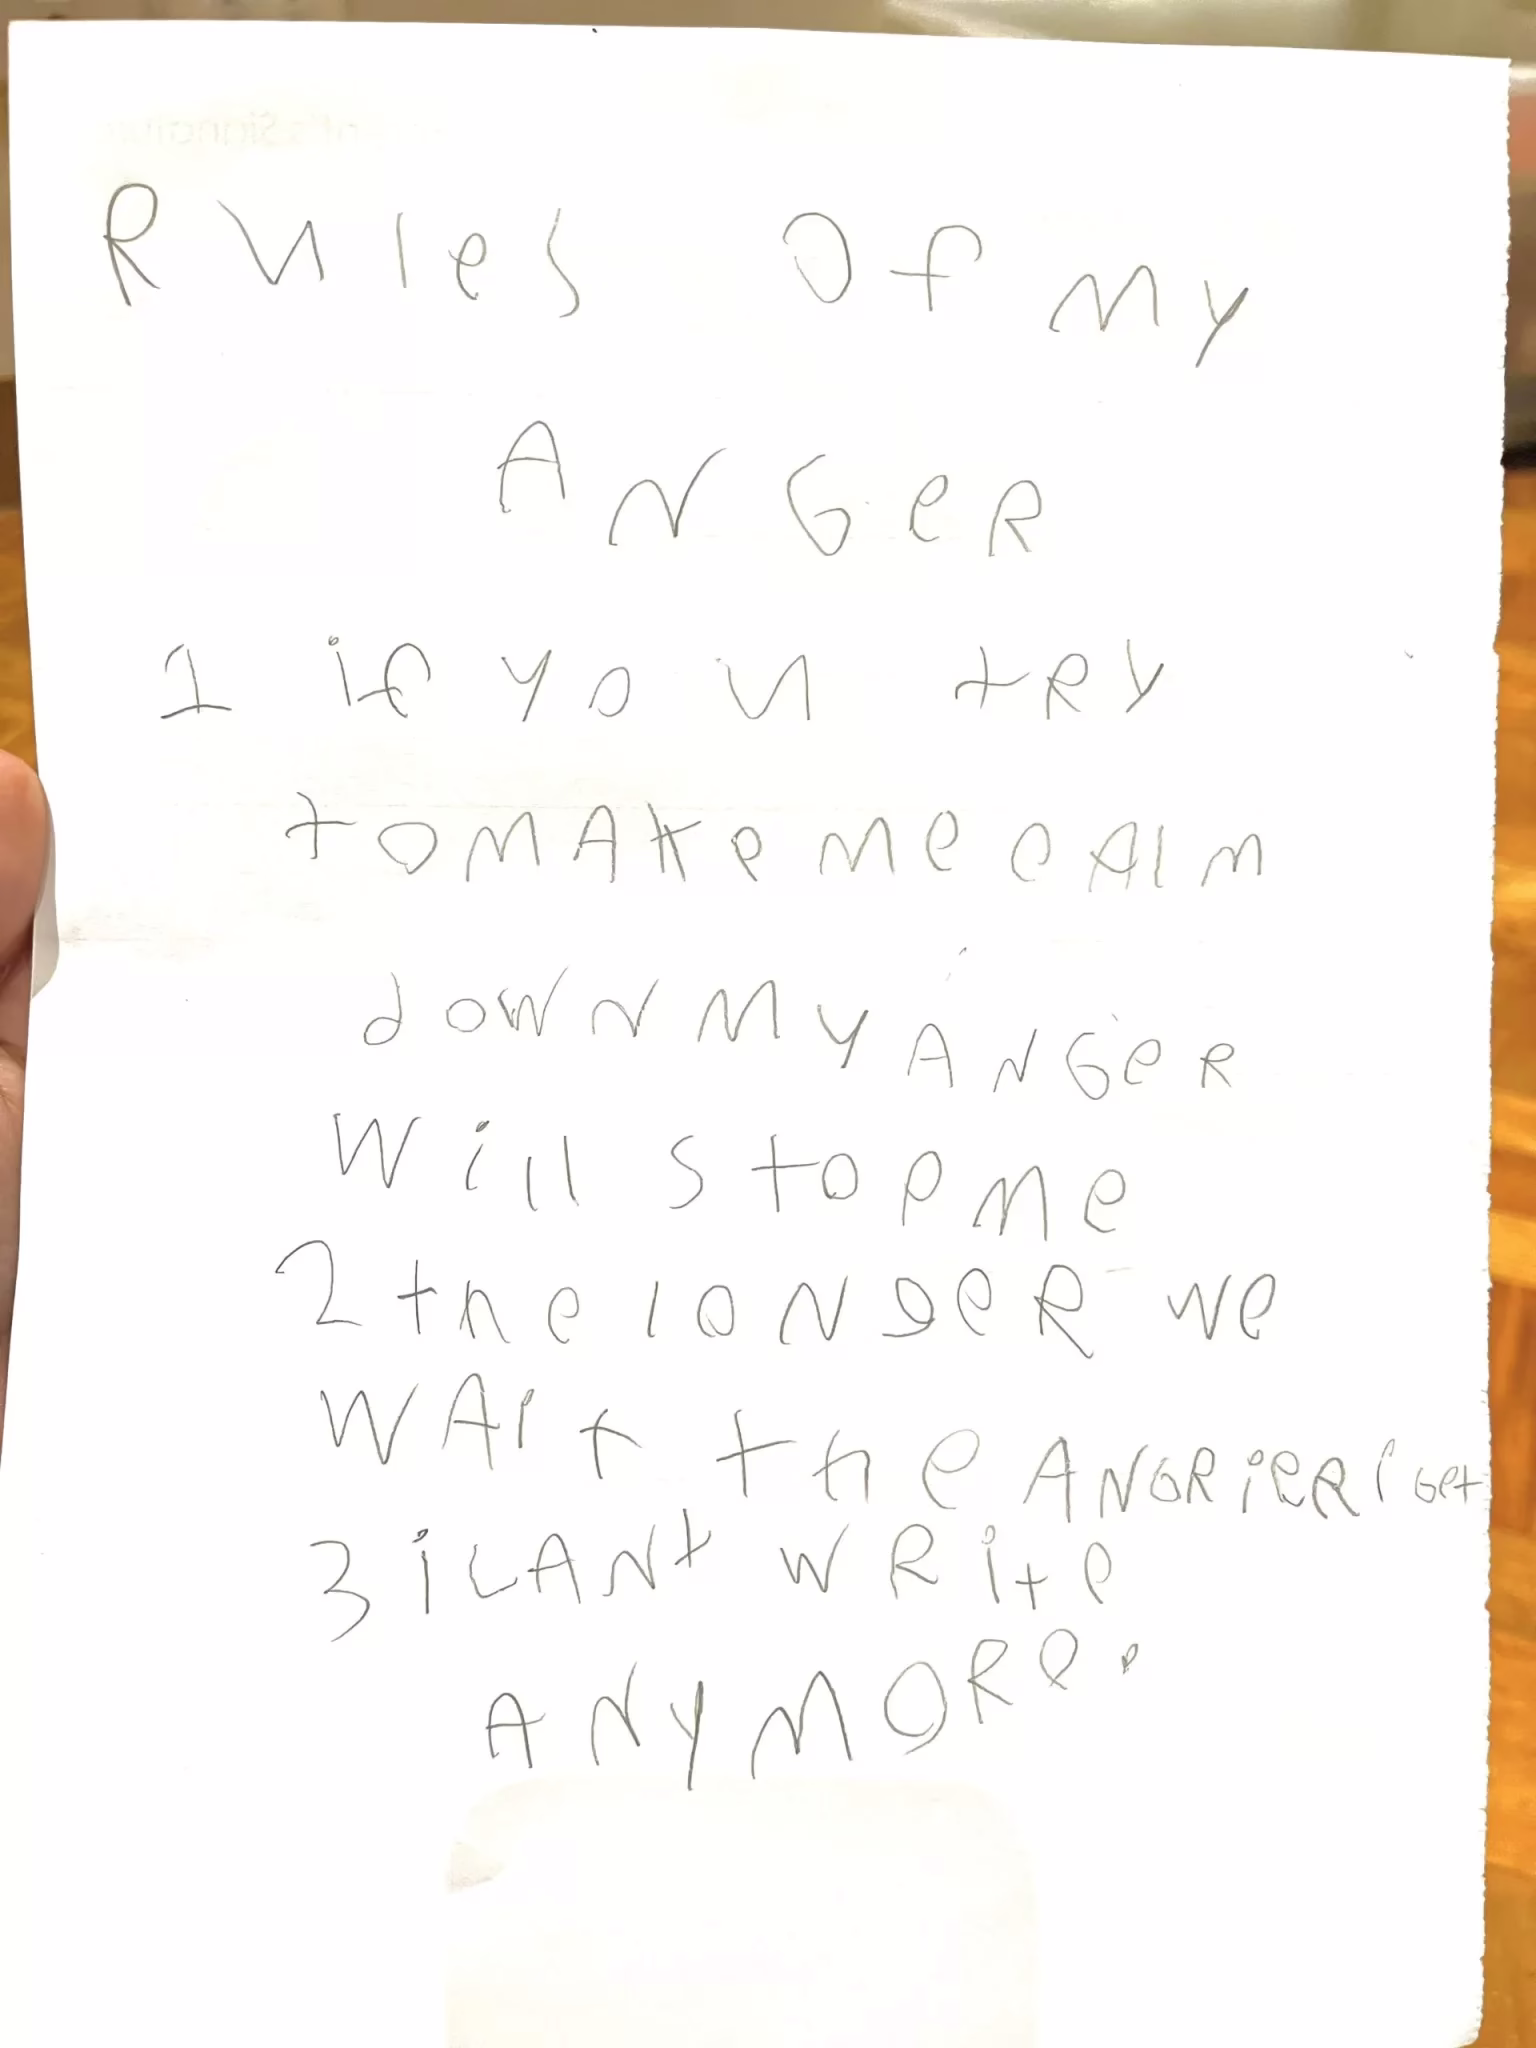 Rules Of MY
ANGeR
1 if you tRY
toMAke Me cAlm
down MY ANGeR
Will stop Me
2 the loNgeR we
WAit the ANGRieR i Get
3 i cANt wRite
ANYMORe.